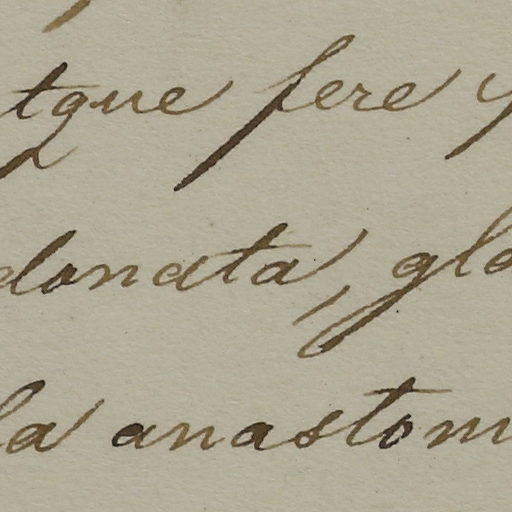 tque fere
donata, glo
la anastom